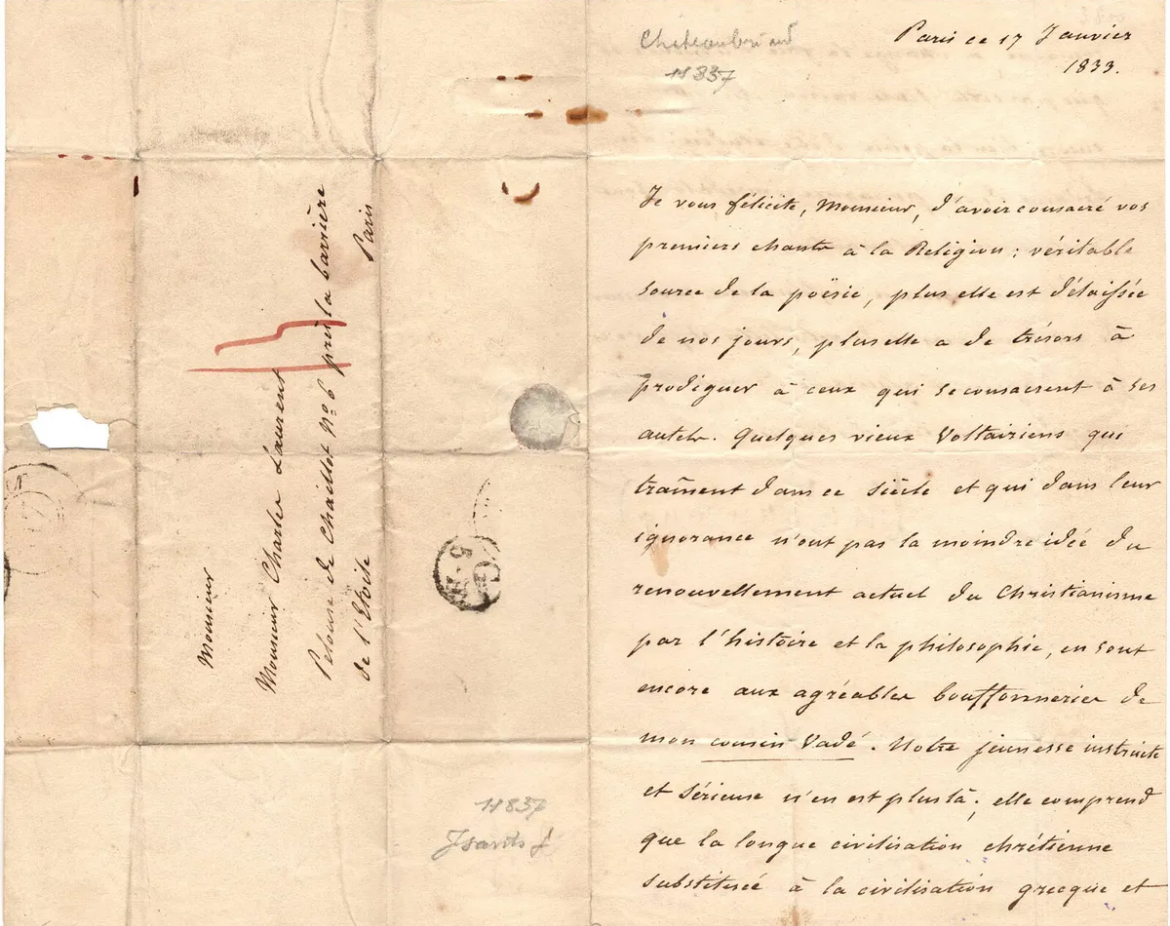 Monsieur
Monsieur Charles Laurent
Pelouse de Chaillot nº 6 près la barrière
de l'Etoile Paris
11837
Chateaubriand
11837
Paris ce 17 Janvier
1833.
Je vous félicite, Monsieur, d'avoir consacré vos
premiers chants à la Religion : véritable
source de la poësie, plus elle est délaissée
de nos jours, plus elle a de trésors à
prodiguer à ceux qui se consacrent à ses
autels. Quelques vieux Voltairiens qui
traînent dans ce siècle et qui dans leur
ignorance n'ont pas la moindre idée du
renouvellement actuel du Christianisme
par l'histoire et la philosophie, en sont
encore aux agréables bouffonneries de
mon cousin Vadé. Notre jeunesse instruite
et sérieuse n'en est plus là ; elle comprend
que la longue civilisation chrétienne
substituée à la civilisation grecque et